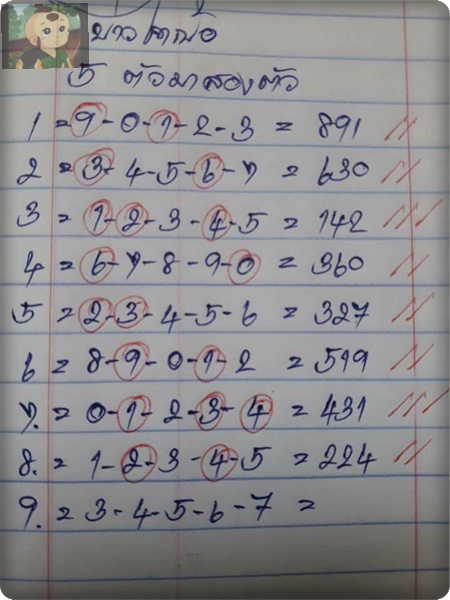 5 ตัวมาสองตัว
1 = 9-0-1-2-3 = 891 //
2 = 3-4-5-6-7 = 630 //
3 = 1-2-3-4-5 = 142 ///
4 = 6-7-8-9-0 = 360 //
5 = 2-3-4-5-6 = 327 //
6 = 8-9-0-1-2 = 519 //
7. = 0-1-2-3-4 = 431 ///
8. = 1-2-3-4-5 = 224 //
9. = 3-4-5-6-7 =